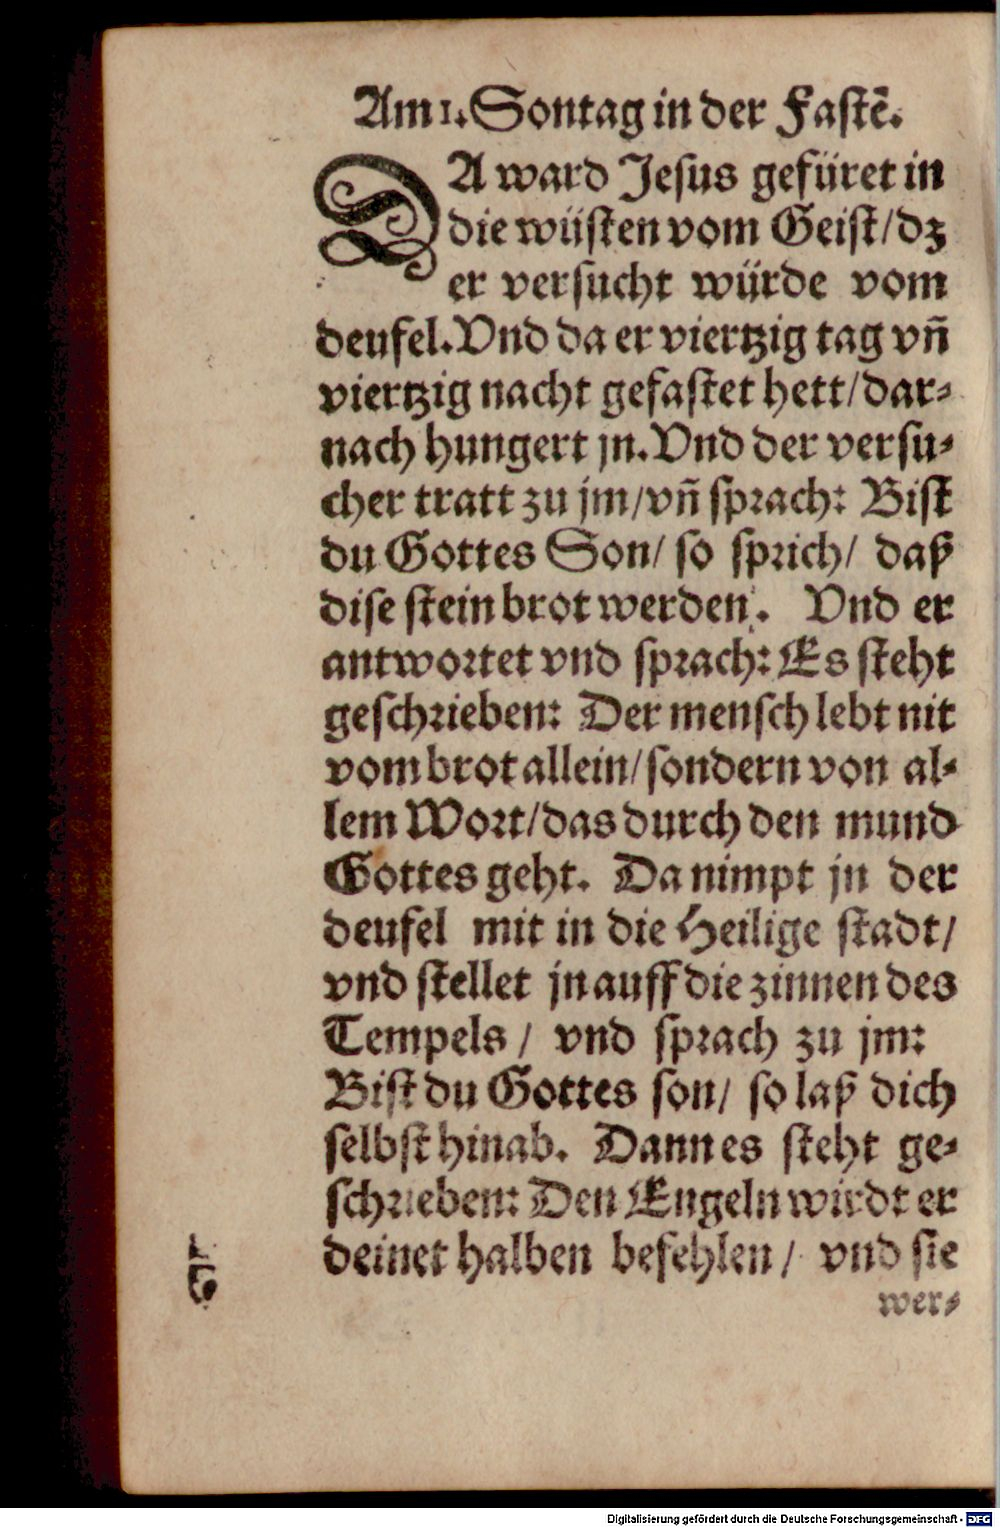 Am 1. Sontag in der Fastē.
DA ward Jesus gefüret in
die wüsten vom Geist/dz
er versucht würde vom
deufel. Vnd da er viertzig tag vñ
viertzig nacht gefastet hett/dar-
nach hungert jn. Vnd der versu-
cher tratt zu jm/vñ sprach: Bist
du Gottes Son/ so sprich/ daß
dise stein brot werden. Vnd er
antwortet vnd sprach: Es steht
geschrieben: Der mensch lebt nit
vom brot allein/sondern von al-
lem Wort/das durch den mund
Gottes geht. Da nimpt jn der
deufel mit in die Heilige stadt/
vnd stellet jn auff die zinnen des
Tempels/ vnd sprach zu jm:
Bist du Gottes son/ so laß dich
selbst hinab. Dann es steht ge-
schrieben: Den Engeln wirdt er
deinet halben befehlen/ vnd sie
wer-
Digitalisierung gefördert durch die Deutsche Forschungsgemeinschaft - DFG